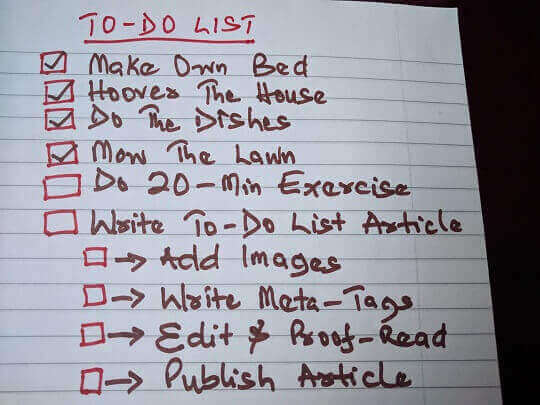 TO-DO LIST
Make Own Bed
Hoover The House
Do The Dishes
Mow The Lawn
Do 20-Min Exercise
Write To-Do List Article
→ Add Images
→ Write Meta-Tags
→ Edit & Proof-Read
→ Publish Article